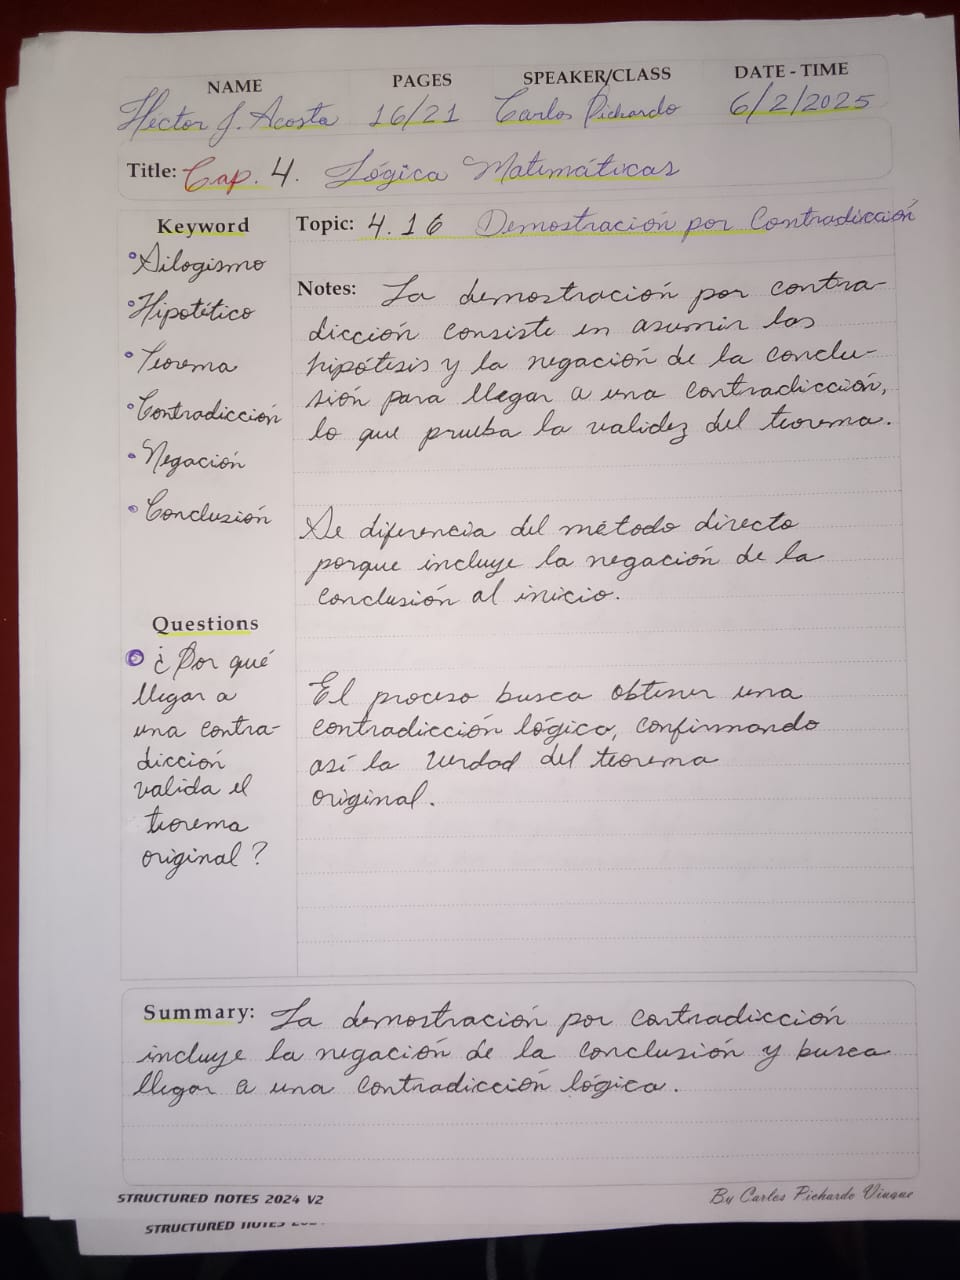 NAME PAGES SPEAKER/CLASS DATE - TIME
Hector J. Acosta 16/21 Carlos Pichardo 6/2/2025
Title: Cap. 4. Lógica Matemáticas
Keyword
Silogismo
Hipotético
Teorema
Contradicción
Negación
Conclusión
Questions
¿Por qué
llegar a
una contra-
dicción
valida el
teorema
original?
Topic: 4.16 Demostración por Contradicción
Notes: La demostración por contra-
dicción consiste en asumir las
hipótesis y la negación de la conclu-
sión para llegar a una contradicción,
lo que prueba la validez del teorema.
Se diferencia del método directo
porque incluye la negación de la
conclusión al inicio.
El proceso busca obtener una
contradicción lógica, confirmando
así la verdad del teorema
original.
Summary: La demostración por contradicción
incluye la negación de la conclusión y busca
llegar a una contradicción lógica.
STRUCTURED NOTES 2024 V2
By Carlos Pichardo Viuque
STRUCTURED NOTES